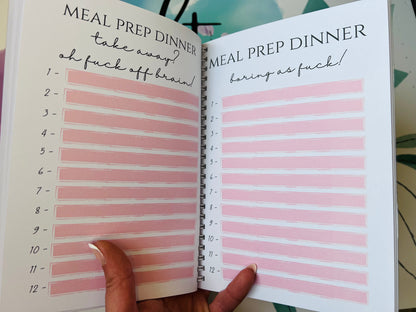 MEAL PREP DINNER
take away?
oh fuck off brain!
1 -
2 -
3 -
4 -
5 -
6 -
7 -
8 -
9 -
10 -
11 -
12 -
MEAL PREP DINNER
boring as fuck!
1 -
2 -
3 -
4 -
5 -
6 -
7 -
8 -
9 -
10 -
11 -
12 -